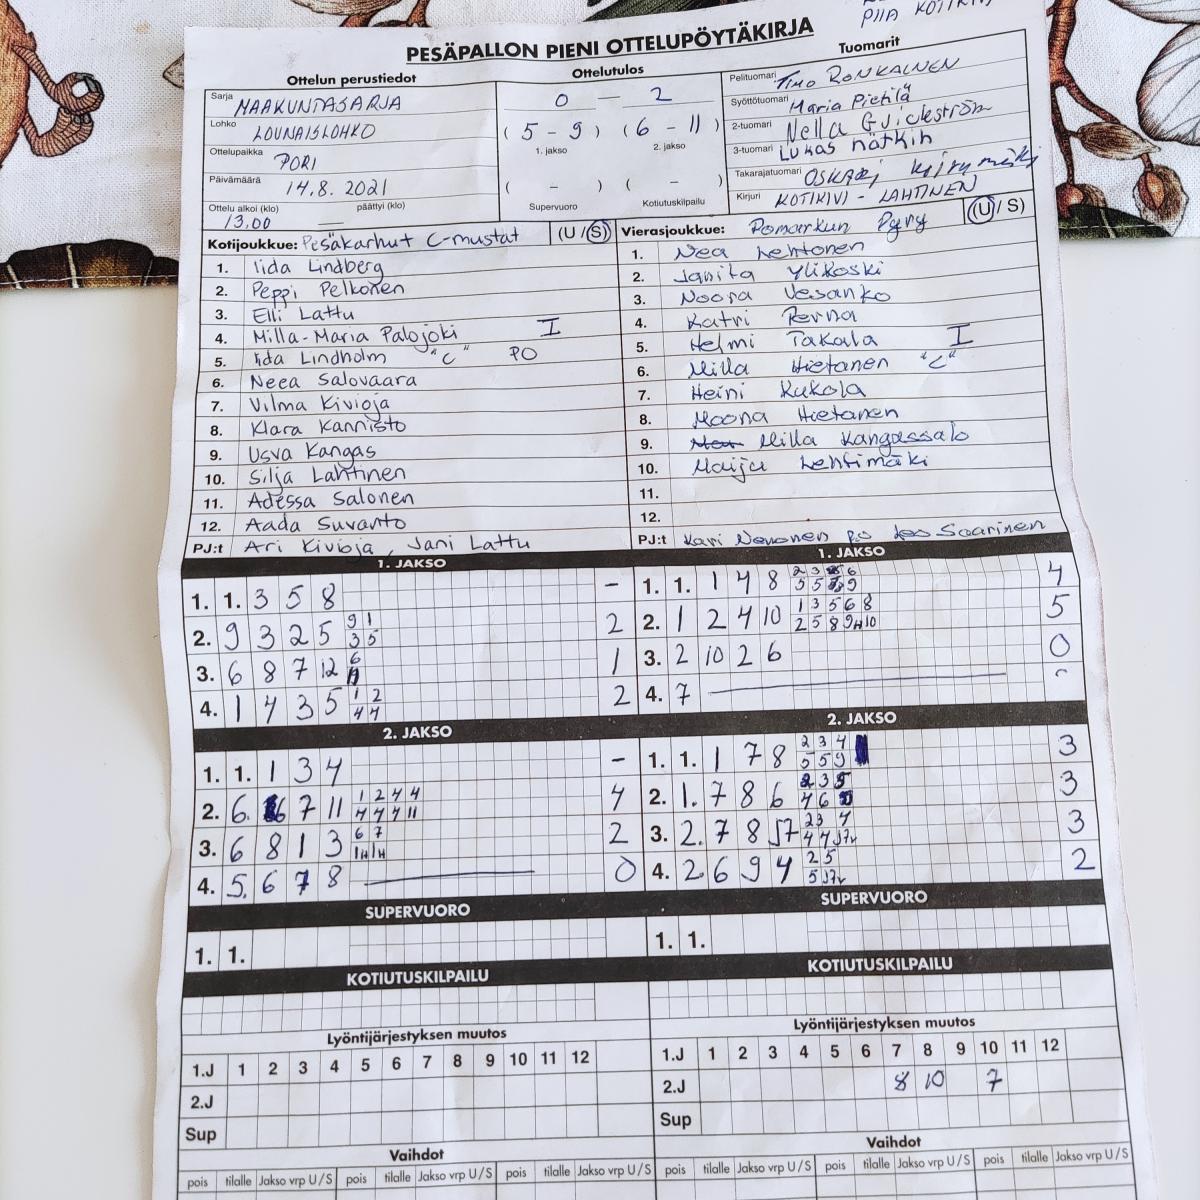 PIIA KOTIKIVI
PESÄPALLON PIENI OTTELUPÖYTÄKIRJA
Ottelun perustiedot
Ottelutulos
Tuomarit
Sarja MAAKUNTASARJA
Lohko LOUNAISLOHKO
Ottelupaikka PORI
Päivämäärä 14.8. 2021
Ottelu alkoi (klo) päättyi (klo)
13.00
0 – 2
(5 - 9) (6 - 11)
1. jakso 2. jakso
( - ) ( - )
Supervuoro Kotiutuskilpailu
Pelituomari TIMO RONKAINEN
Syöttötuomari Maria Pietilä
2-tuomari Nella
3-tuomari LUKAS nätkin
Takarajatuomari OSKARI
Kirjuri KOTIKIVI - LAHTINEN
Kotijoukkue: Pesäkarhut C-mustat (U / S)
1. Iida Lindberg
2. Peppi Pelkonen
3. Elli Lattu
4. Milla-Maria Palojoki I
5. Iida Lindholm "C" PO
6. Neea Salovaara
7. Vilma Kivioja
8. Klara Kannisto
9. Usva Kangas
10. Silja Lahtinen
11. Adessa Salonen
12. Aada Suvanto
PJ:t Ari Kivioja, Jani Lattu
Vierasjoukkue: Pomarkun Pyry (U / S)
1. Nea Lehtonen
2. Janita Ylikoski
3. Noora Vesanko
4. Katri Perna
5. Helmi Takala I
6. Milla Hietanen "C"
7. Heini Kukola
8. Moona Hietanen
9. Milla Kangassalo
10. Maiju Lehtimäki
11.
12.
PJ:t Kari Nevonen Saarinen
1. JAKSO
1. 1. 3 5 8 –
2. 9 3 2 5 9 1 2
3 5
3. 6 8 7 12 6 1
4. 1 4 3 5 1 2 2
4 4
1. JAKSO
1. 1. 1 4 8 2 3 6 4
5 5 9
2. 1 2 4 10 1 3 5 6 8 5
2 5 8 9H 10
3. 2 10 2 6 0
4. 7
2. JAKSO
1. 1. 1 3 4 –
2. 6. 6 7 11 1 2 4 4 4
4 4 4 11
3. 6 8 1 3 6 7 2
1H 1H
4. 5. 6 7 8 0
2. JAKSO
1. 1. 1 7 8 2 3 4 3
5 5 9
2. 1. 7 8 6 2 3 5 3
4 6
3. 2. 7 8 J7 2 3 4 3
4 4 J7v
4. 2 6 9 4 2 5 2
5 J7v
SUPERVUORO
1. 1.
SUPERVUORO
1. 1.
KOTIUTUSKILPAILU
KOTIUTUSKILPAILU
Lyöntijärjestyksen muutos
1.J 1 2 3 4 5 6 7 8 9 10 11 12
2.J
Sup
Lyöntijärjestyksen muutos
1.J 1 2 3 4 5 6 7 8 9 10 11 12
2.J 8 10 7
Sup
Vaihdot
pois tilalle Jakso vrp U / S pois tilalle Jakso vrp U / S pois tilalle Jakso vrp U / S
Vaihdot
pois tilalle Jakso vrp U / S pois tilalle Jakso vrp U / S pois tilalle